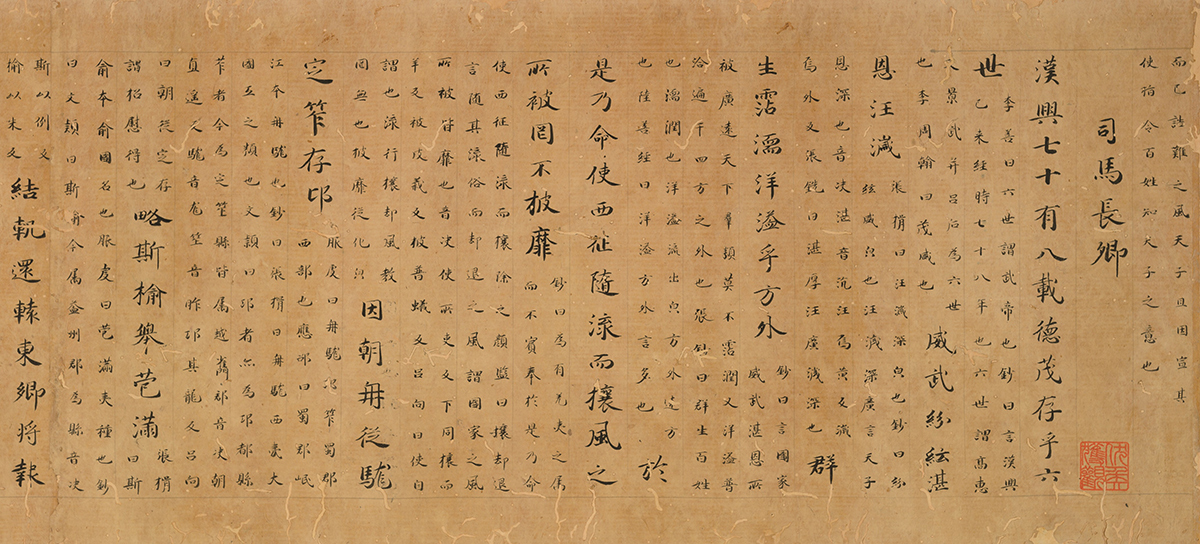 而已詰難之風天子且因宣其
使指令百姓知天子之意也
司馬長卿
漢興七十有八載德茂存乎六
世
李善曰六世謂武帝也鈔曰言漢興
乙未經時七十八年也六世謂高惠
文景武并呂后為六世
也李周翰曰茂盛也
威武紛紜湛
恩汪濊
張揖曰汪濊深皃也鈔曰紛
紜威皃也汪濊深廣言天子
恩深也音决湛音沉汪烏黄反濊
烏外反張銑曰湛厚汪廣濊深也
群
生霑濡洋溢乎方外
鈔曰言國家
威武湛恩所
被廣遠天下羣類莫不霑潤又洋溢普
洽遍于四方之外也張銑曰群生百姓
也濡潤也洋溢流出皃方外遠方
也陸善經曰洋溢方外言多也
於
是乃命使西征隨流而攘風之
所被罔不披靡
鈔曰為有羌夷之屬
而不賓奉於是乃命
使西征隨流而攘除之顔監曰攘却退
言隨其流俗而却退之風謂國家之風
所被皆靡也音决使所吏反下同攘而
羊反被皮義反披普蟻反呂向曰使自
謂也流行攘却風教
罔無也披靡從化皃
因朝冉從駹
定笮存邛
服虔曰冉駹邛笮蜀郡
西部也應邵曰蜀郡岷
江本冉駹也鈔曰張揖曰冉駹西夷大
國五之類也文穎曰邛者今為邛都縣
笮者今為定笮縣皆属越嶲郡音决朝
直遥反駹音尨笮音昨邛其龍反呂向
曰朝從定存
謂招慰得也
略斯榆舉苞滿
張揖
曰斯
俞本俞國名也服虔曰苞滿夷種也鈔
曰文穎曰斯舟今属益州郡為縣音决
斯以例反
榆以朱反
結軌還轅東鄉將報